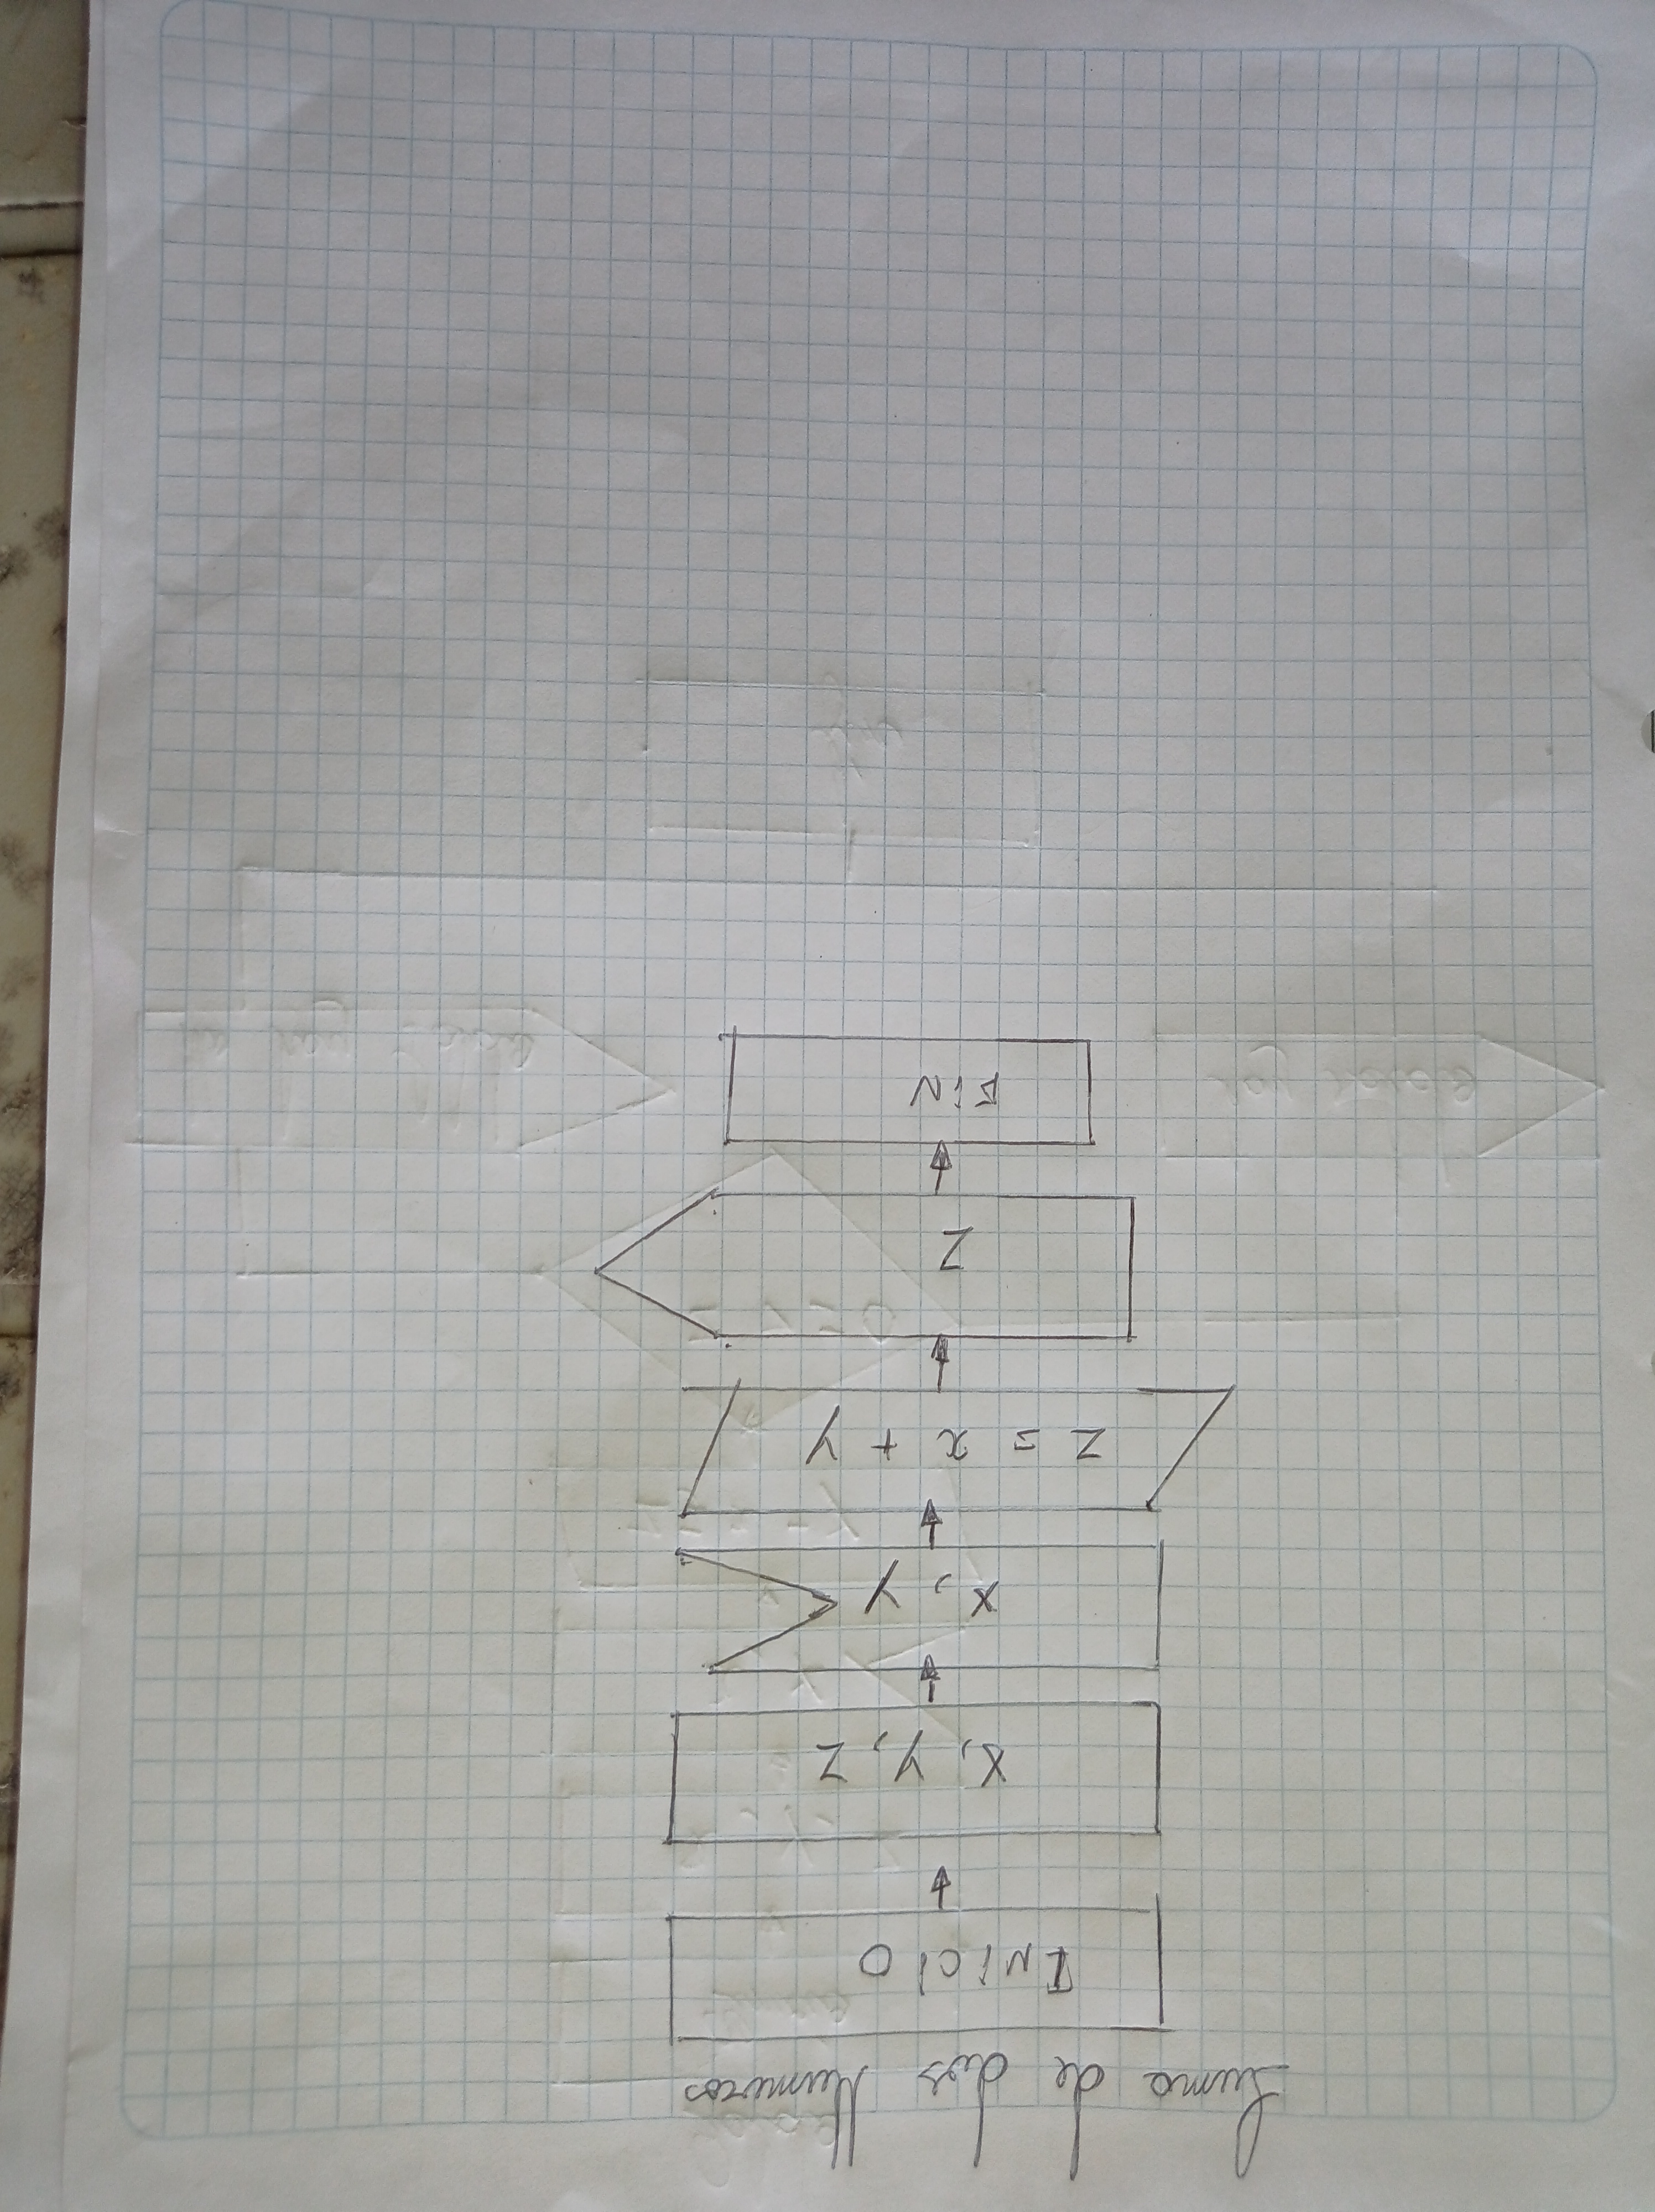 Suma de dos Numeros
INICIO
X, Y, Z
X, Y
Z = X + Y
Z
FiN